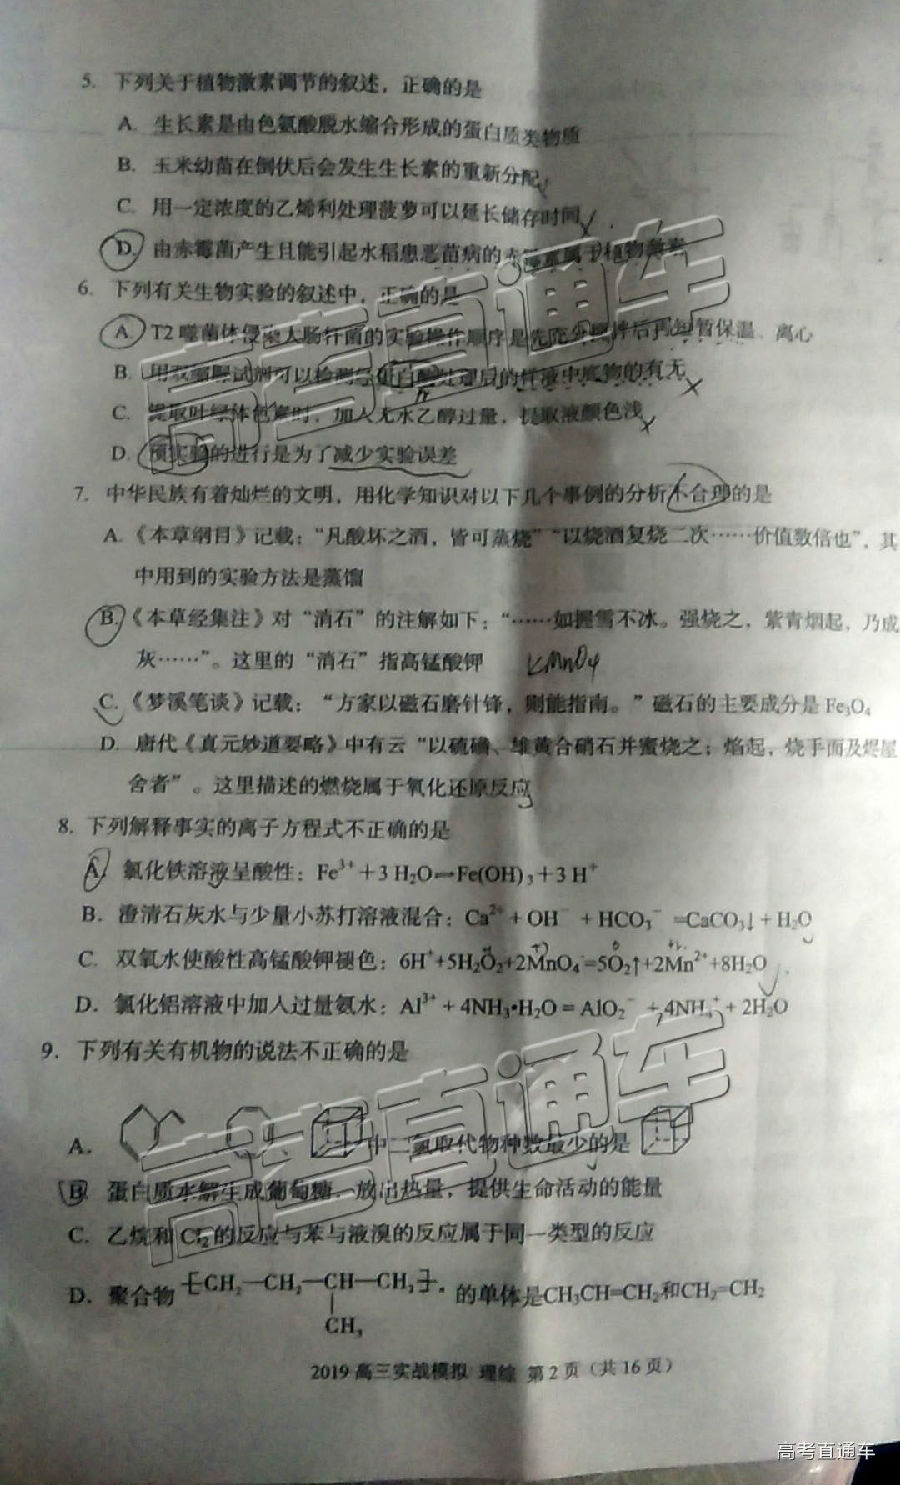 5. 下列关于植物激素调节的叙述，正确的是
A. 生长素是由色氨酸脱水缩合形成的蛋白质类物质
B. 玉米幼苗在倒伏后会发生生长素的重新分配
C. 用一定浓度的乙烯利处理菠萝可以延长储存时间
D. 由赤霉菌产生且能引起水稻患恶苗病的赤霉素属于植物激素
6. 下列有关生物实验的叙述中，正确的是
A. T2噬菌体侵染大肠杆菌的实验操作顺序是先充分搅拌后再短暂保温、离心
B. 用双缩脲试剂可以检测经蛋白酶处理后的样液中底物的有无
C. 提取叶绿体色素时，加入无水乙醇过量，提取液颜色浅
D. 预实验的进行是为了减少实验误差
7. 中华民族有着灿烂的文明，用化学知识对以下几个事例的分析不合理的是
A.《本草纲目》记载：“凡酸坏之酒，皆可蒸烧”“以烧酒复烧二次……价值数倍也”，其
中用到的实验方法是蒸馏
B.《本草经集注》对“消石”的注解如下：“……如握雪不冰。强烧之，紫青烟起，乃成
灰……”。这里的“消石”指高锰酸钾 KMnO4
C.《梦溪笔谈》记载：“方家以磁石磨针锋，则能指南。”磁石的主要成分是 Fe₃O₄
D. 唐代《真元妙道要略》中有云“以硫磺、雄黄合硝石并蜜烧之；焰起，烧手面及烬屋
舍者”。这里描述的燃烧属于氧化还原反应
8. 下列解释事实的离子方程式不正确的是
A. 氯化铁溶液呈酸性：Fe³⁺＋3 H₂O⇌Fe(OH)₃＋3 H⁺
B. 澄清石灰水与少量小苏打溶液混合：Ca²⁺＋OH⁻＋HCO₃⁻=CaCO₃↓＋H₂O
C. 双氧水使酸性高锰酸钾褪色：6H⁺+5H₂O₂+2MnO₄⁻=5O₂↑+2Mn²⁺+8H₂O
D. 氯化铝溶液中加入过量氨水：Al³⁺ + 4NH₃•H₂O = AlO₂⁻ + 4NH₄⁺ + 2H₂O
9. 下列有关有机物的说法不正确的是
A. 中二氯取代物种数最少的是
B. 蛋白质水解生成葡萄糖，放出热量，提供生命活动的能量
C. 乙烷和 Cl₂的反应与苯与液溴的反应属于同一类型的反应
D. 聚合物 ⁅CH₂—CH₂—CH—CH₂⁆ₙ 的单体是CH₃CH=CH₂和CH₂=CH₂
CH₃
2019 高三实战模拟 理综 第 2 页（共 16 页）
高考直通车
高考直通车
高考直通车